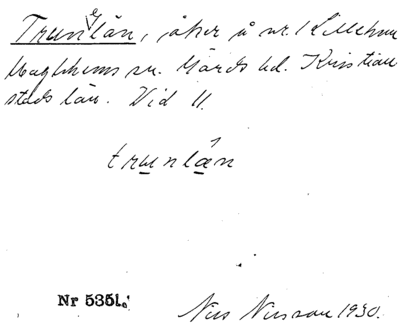 Trunelän, åker å nr. 1 Lillehem
Maglehems sn. Gärds hd. Kristian
stads län. Vid 11.
trunlän
Nr 5351.
Nils Nilsson 1930.